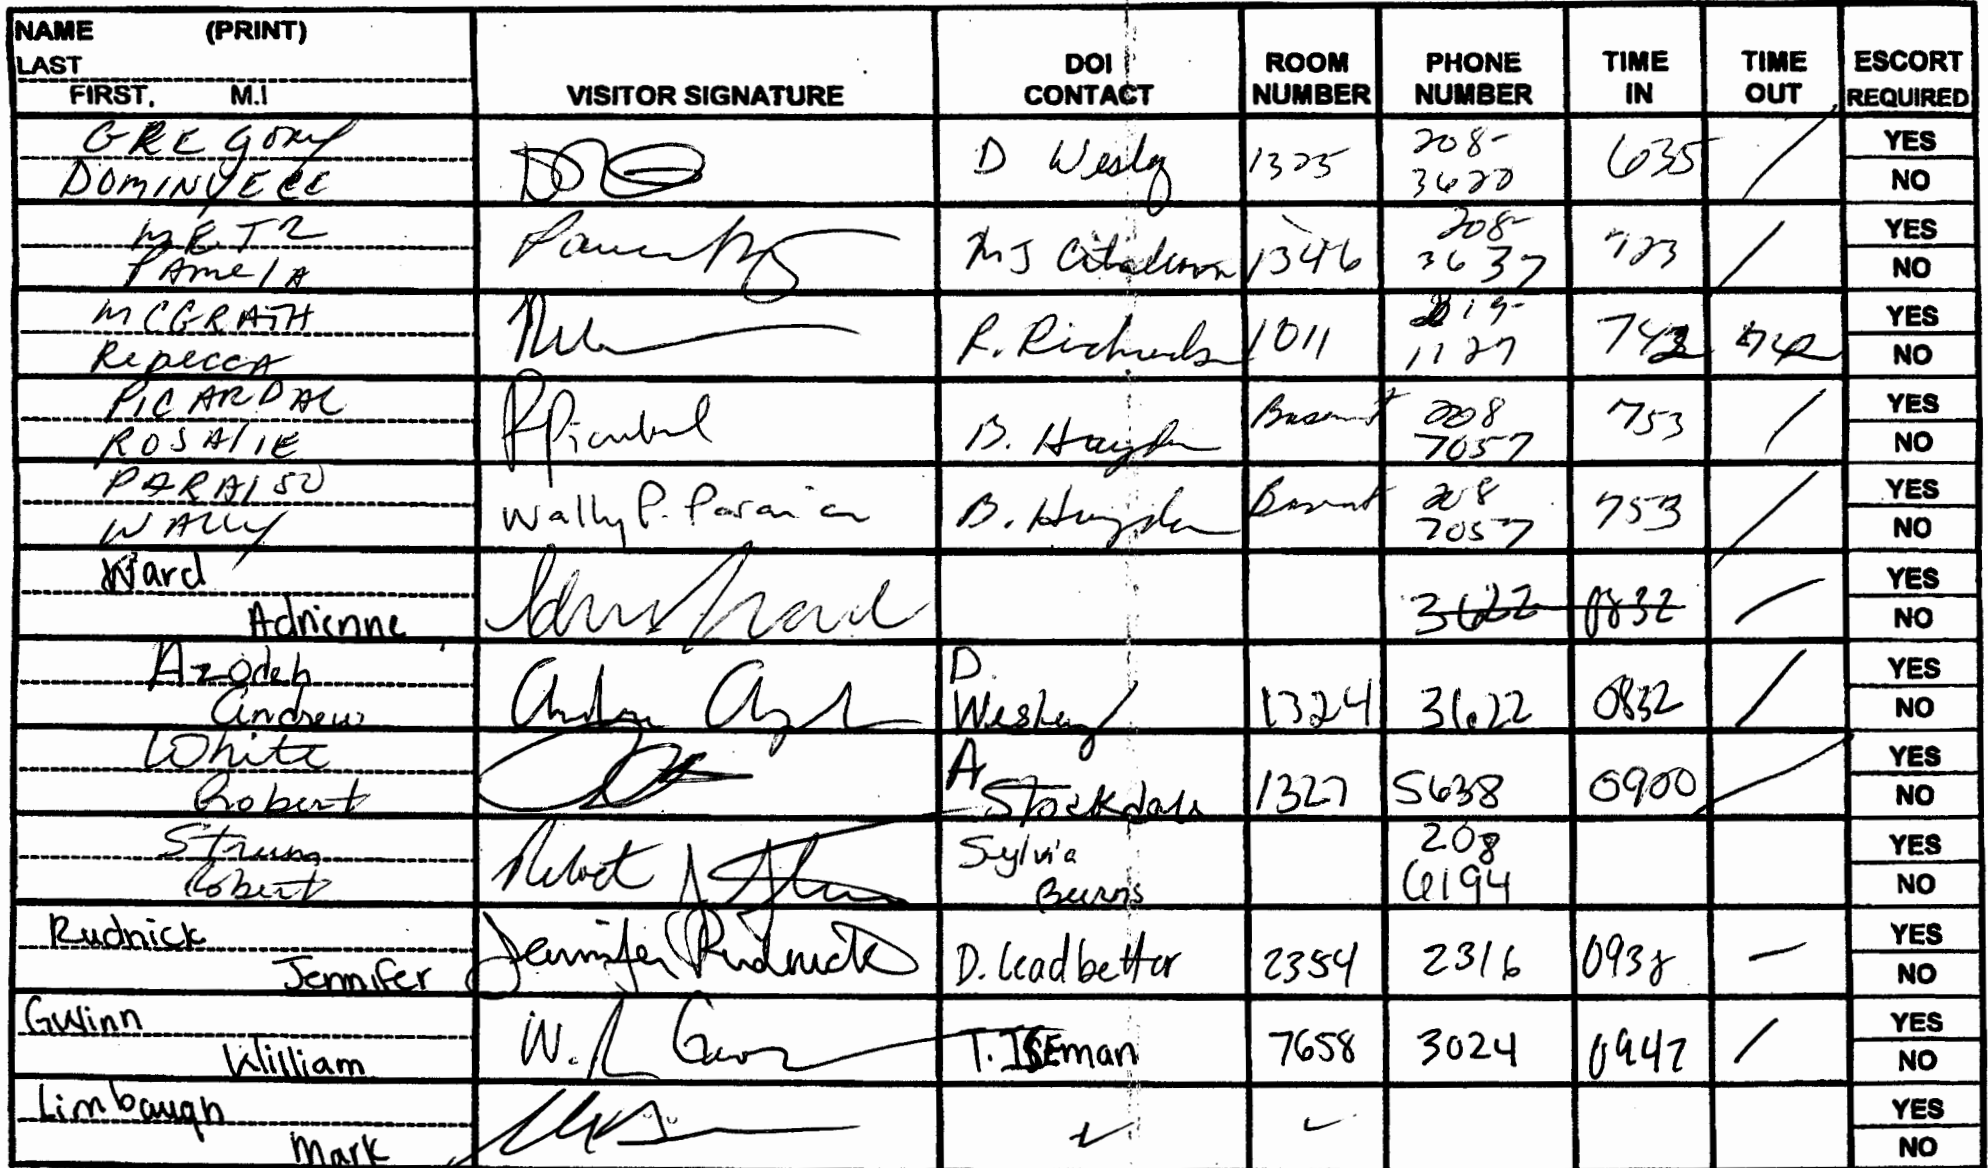 NAME (PRINT)
LAST
FIRST, M.I
VISITOR SIGNATURE
DOI CONTACT
ROOM NUMBER
PHONE NUMBER
TIME IN
TIME OUT
ESCORT REQUIRED
GREGORY
D Wesley 1325 208- 635 YES
3620 NO
METZ
PAMELA
MJ 1346 208- 723 YES
3637 NO
MCGRATH
Rebecca
R. Richards 1011 219- 742 742 YES
1127 NO
PICARDAL
ROSALIE
B. Hayden Basement 208 753 YES
7057 NO
PARAISO
WALLY
Wally P. Paraiso B. Hayden Basement 208 753 YES
7057 NO
Ward
Adrienne
3622 0832 YES
NO
Azodeh
Andrew
D. Wesley 1324 3622 0832 YES
NO
White
Robert
A Stockdale 1327 5638 0900 YES
NO
Robert
Robert Sylvia Burns 208 YES
6194 NO
Rudnick
Jennifer
Jennifer Rudnick D. Leadbetter 2354 2316 0938 YES
NO
Gwinn
William
T. ISEman 7658 3024 0947 YES
NO
Limbaugh
Mark
✓ ✓ YES
NO